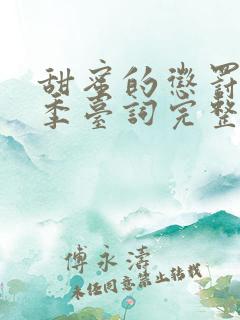 甜蜜的懲罰
季臺詞完整
傅永濤
未經同意禁止轉載